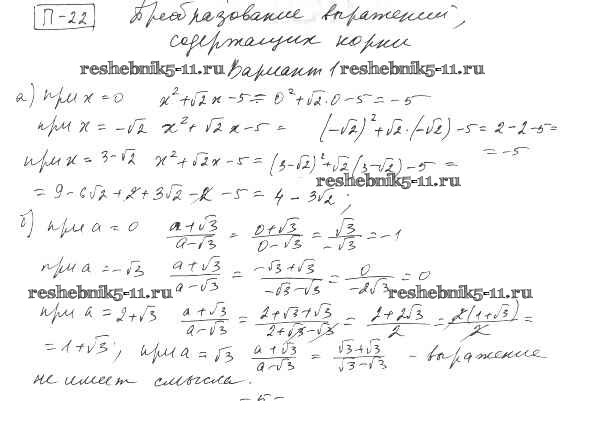 П-22 Преобразование выражений,
содержащих корни
reshebnik5-11.ru Вариант 1 reshebnik5-11.ru
а) при x = 0 x² + √2 x - 5 = 0² + √2 · 0 - 5 = -5
при x = -√2 x² + √2 x - 5 = (-√2)² + √2 · (-√2) - 5 = 2 - 2 - 5 =
= -5
при x = 3 - √2 x² + √2 x - 5 = (3-√2)² + √2 (3-√2) - 5 =
reshebnik5-11.ru
= 9 - 6√2 + 2 + 3√2 - 2 - 5 = 4 - 3√2;
б) при a = 0 (a+√3)/(a-√3) = (0+√3)/(0-√3) = √3/(-√3) = -1
при a = -√3 (a+√3)/(a-√3) = (-√3+√3)/(-√3-√3) = 0/(-2√3) = 0
reshebnik5-11.ru reshebnik5-11.ru
при a = 2+√3 (a+√3)/(a-√3) = (2+√3+√3)/(2+√3-√3) = (2+2√3)/2 = 2(1+√3)/2 =
= 1+√3; при a = √3 (a+√3)/(a-√3) = (√3+√3)/(√3-√3) - выражение
не имеет смысла.
- 5 -